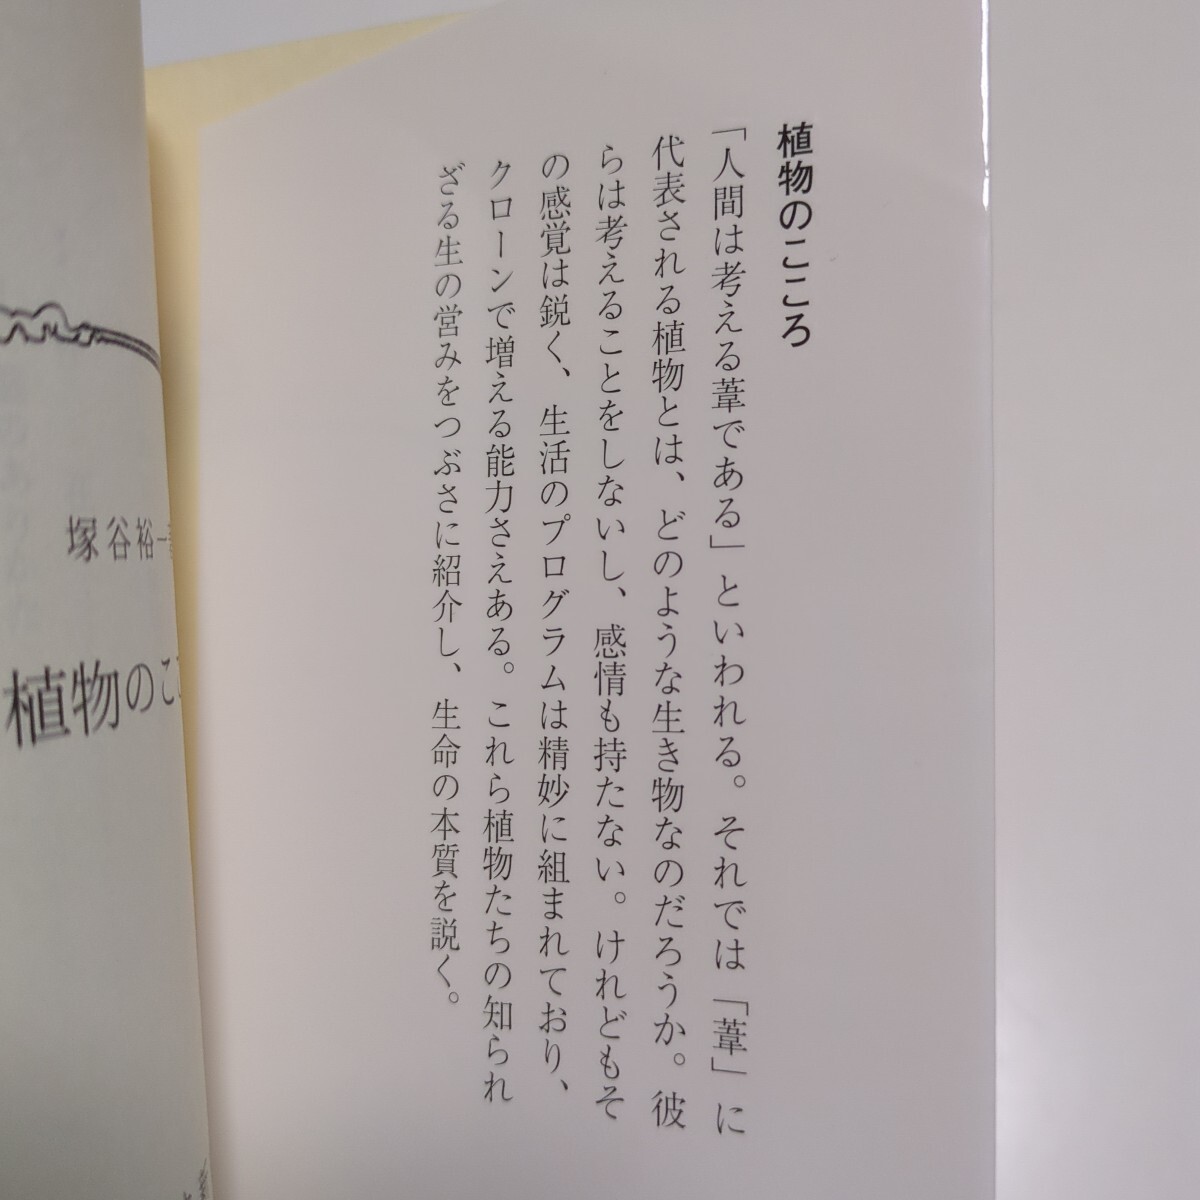 植物のこころ
「人間は考える葦である」といわれる。それでは「葦」に
代表される植物とは、どのような生き物なのだろうか。彼
らは考えることをしないし、感情も持たない。けれどもそ
の感覚は鋭く、生活のプログラムは精妙に組まれており、
クローンで増える能力さえある。これら植物たちの知られ
ざる生の営みをつぶさに紹介し、生命の本質を説く。
塚谷裕一
植物のこ